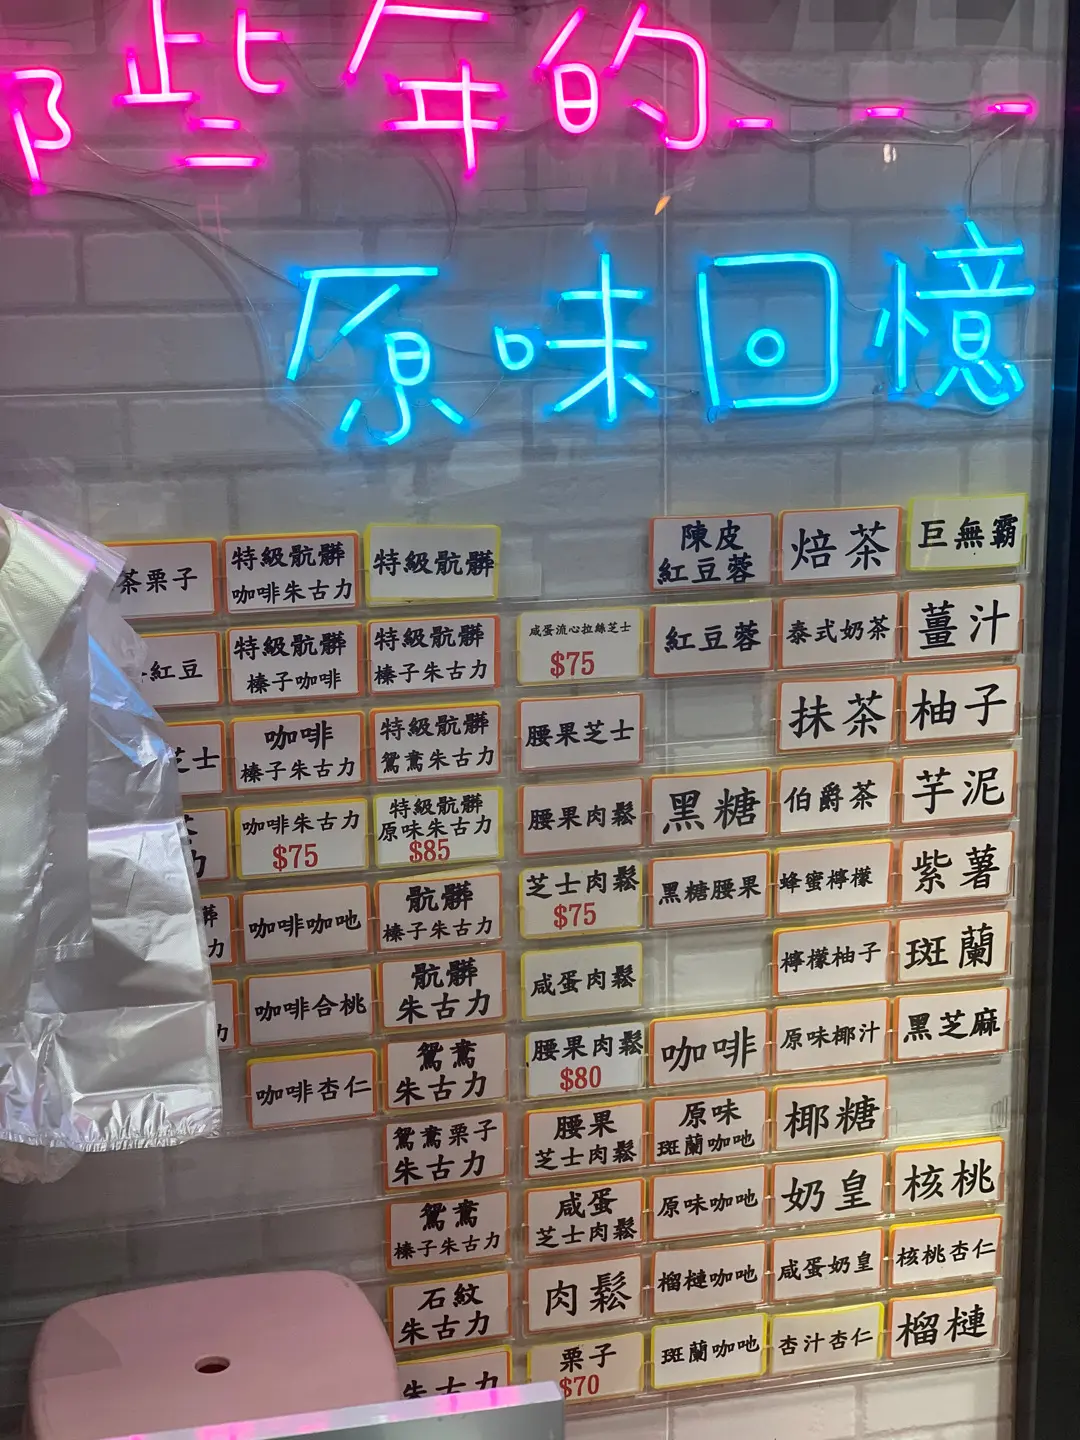 那些年的...
原味回憶
茶栗子
特級骯髒
咖啡朱古力
特級骯髒
陳皮
紅豆蓉
焙茶
巨無霸
紅豆
特級骯髒
榛子咖啡
特級骯髒
榛子朱古力
咸蛋流心拉絲芝士
$75
紅豆蓉
泰式奶茶
薑汁
芝士
咖啡
榛子朱古力
特級骯髒
鴛鴦朱古力
腰果芝士
抹茶
柚子
咖啡朱古力
$75
特級骯髒
原味朱古力
$85
腰果肉鬆
黑糖
伯爵茶
芋泥
咖啡咖吔
骯髒
榛子朱古力
芝士肉鬆
$75
黑糖腰果
蜂蜜檸檬
紫薯
咖啡合桃
骯髒
朱古力
咸蛋肉鬆
檸檬柚子
斑蘭
咖啡杏仁
鴛鴦
朱古力
腰果肉鬆
$80
咖啡
原味椰汁
黑芝麻
鴛鴦栗子
朱古力
腰果
芝士肉鬆
原味
斑蘭咖吔
椰糖
鴛鴦
榛子朱古力
咸蛋
芝士肉鬆
原味咖吔
奶皇
核桃
石紋
朱古力
肉鬆
榴槤咖吔
咸蛋奶皇
核桃杏仁
朱古力
栗子
$70
斑蘭咖吔
杏汁杏仁
榴槤